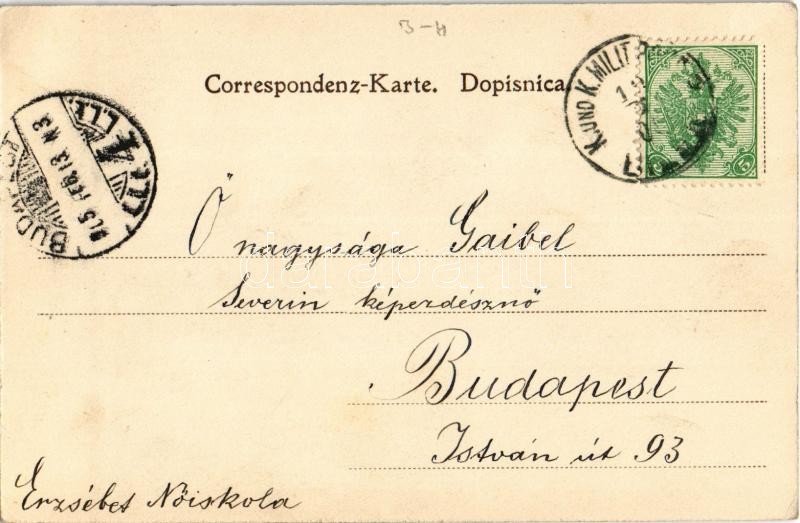 B-H
Correspondenz-Karte. Dopisnica.
K. UND K. MILIT.
BUDAPEST
905 FEB. 13. N3
5
Ő nagysága Gaibel
Severin képezdésznő
Budapest
István út 93
Erzsébet Nőiskola
darabanth